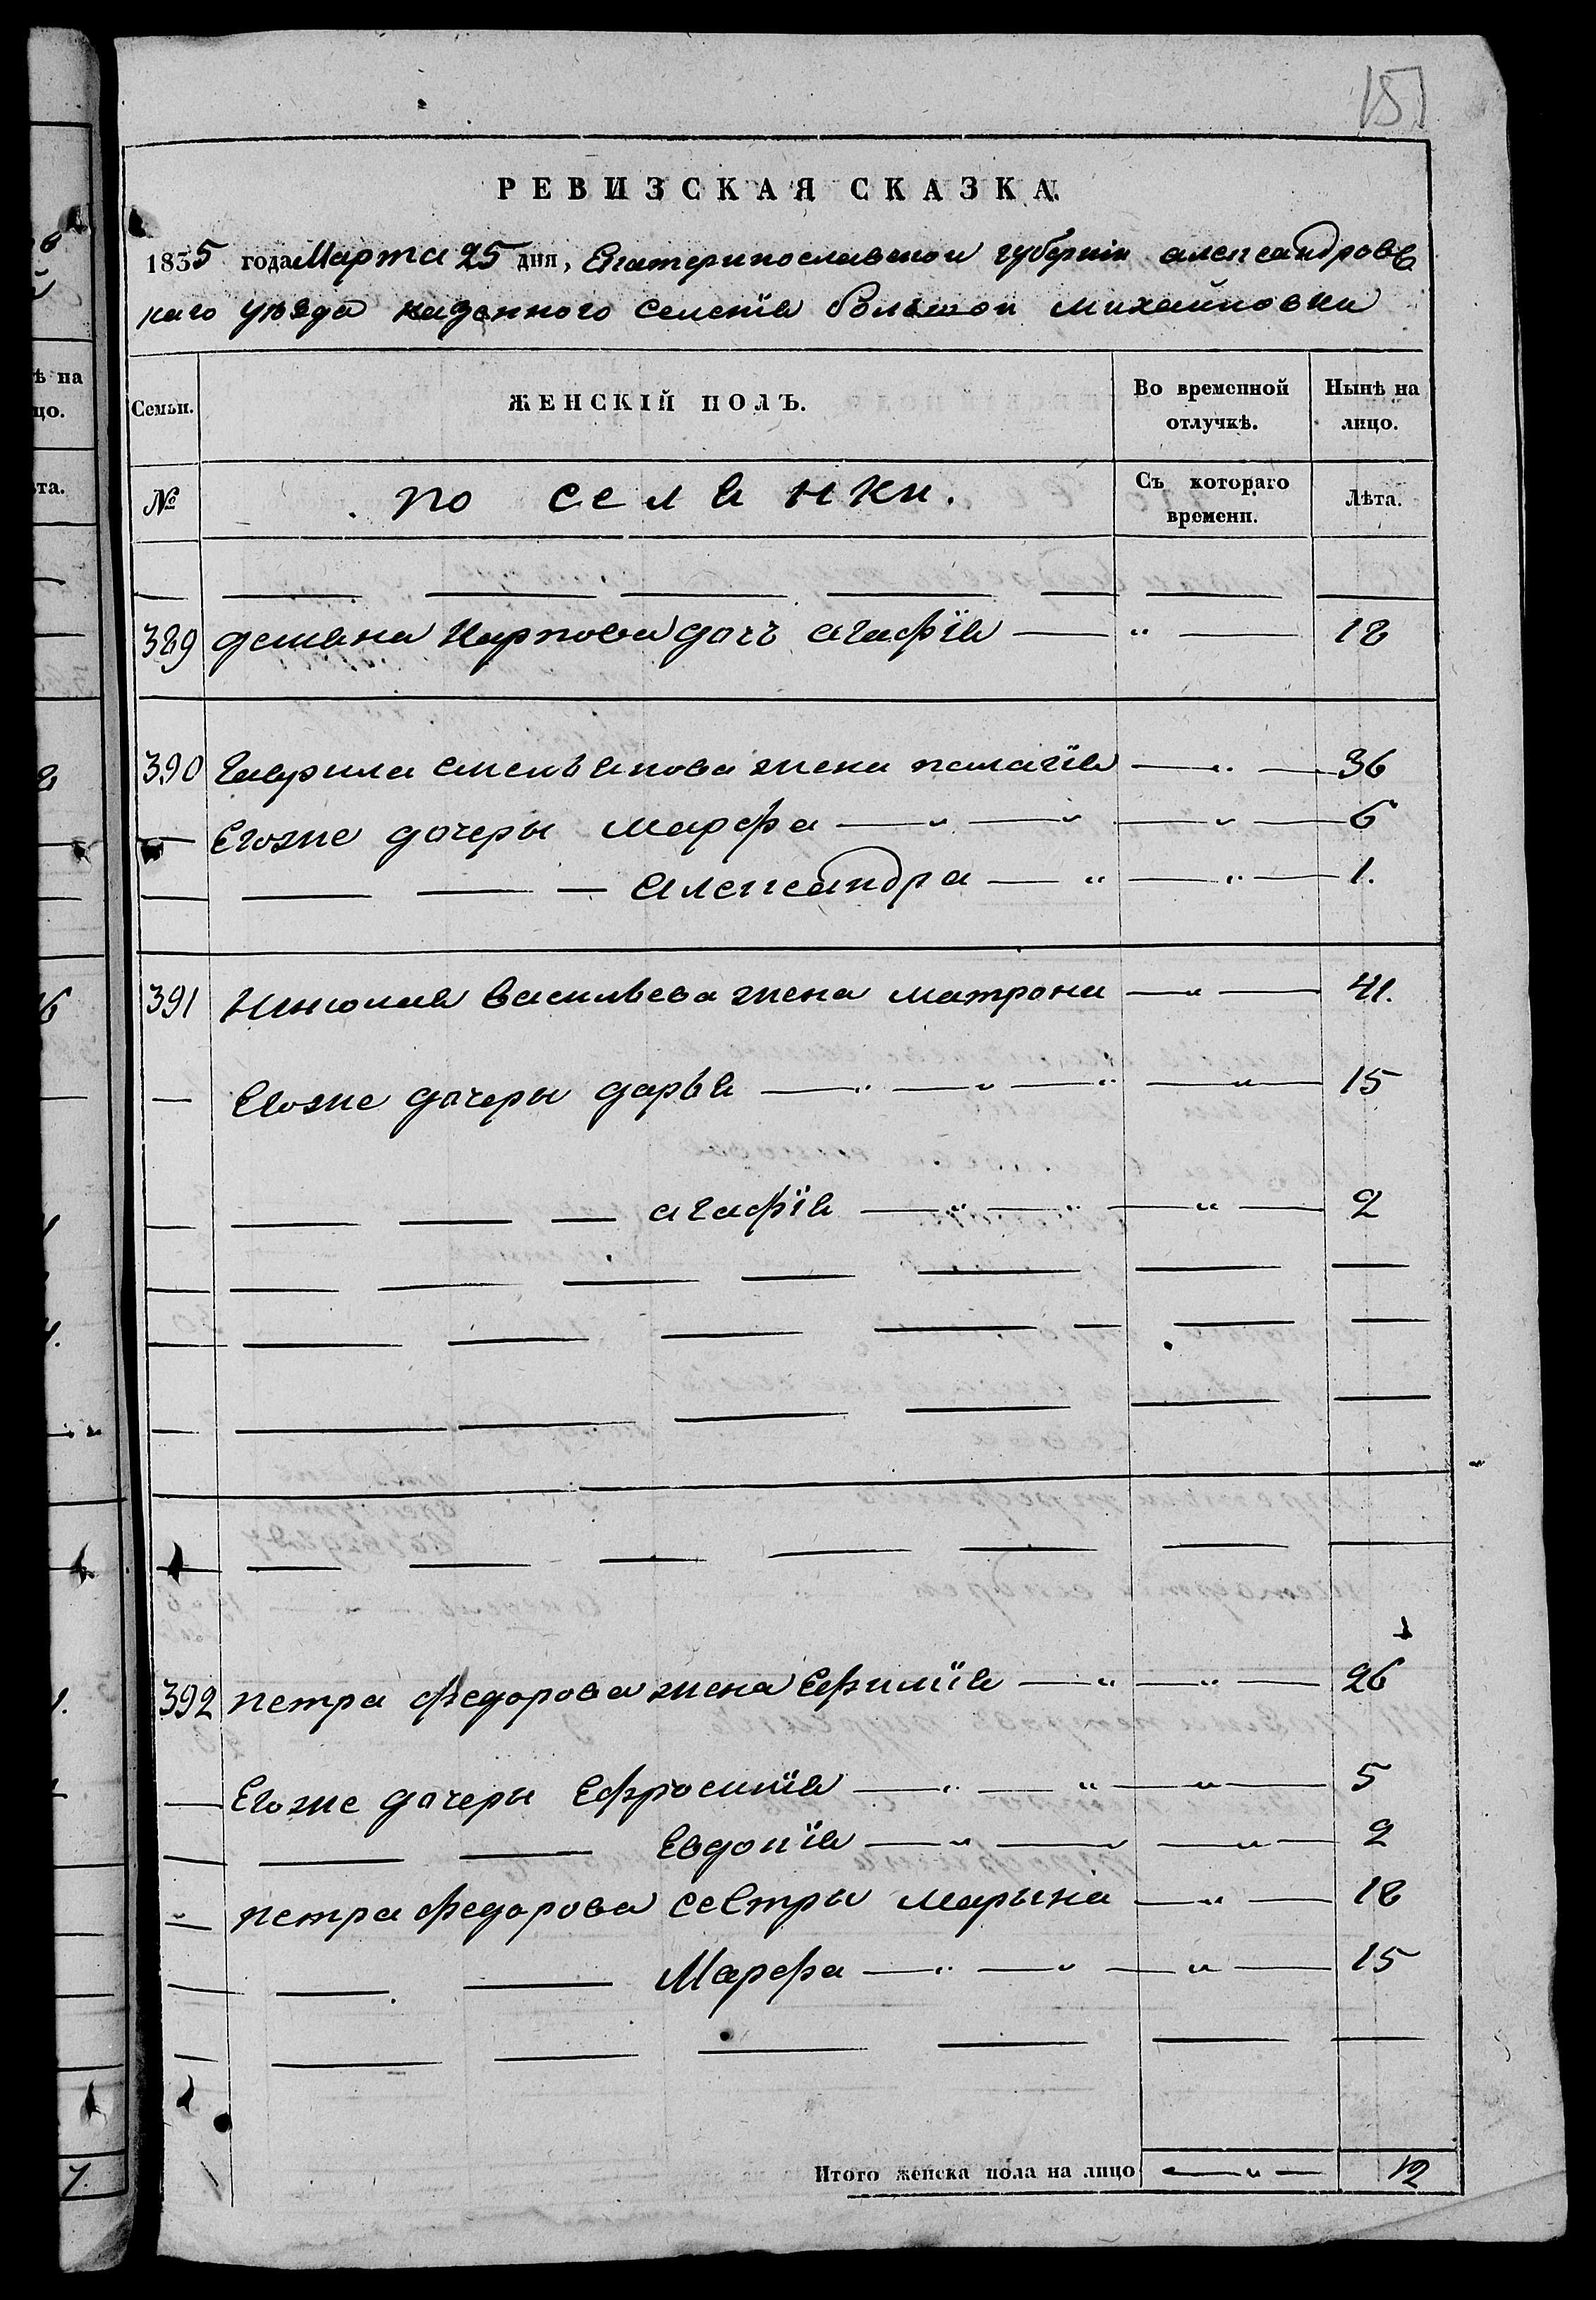 151
РЕВИЗСКАЯ СКАЗКА.
1835 года Марта 25 дня, Екатеринославской губерніи александровс
каго уѣзда казенного селенія большой михайловки
Семьи.
ЖЕНСКІЙ ПОЛЪ.
Во временной отлучкѣ.
Нынѣ на лицо.
№
поселянки.
Съ котораго времени.
Лѣта.
389 демяна Карпова дочъ агафія — " — 18
390 Гаврила емельянова жена палагія — " — 36
— Егоже дочеры марфа — " — " — " — 6
— — — — александра — " — " — 1.
391 Николая васильева жена матрона — " — 41.
— Егоже дочеры дарья — " — " — " — " — 15
— — — — агафія — " — " — " — 2
392 петра федорова жена Ефимія — " — " — 26
— Егоже дочеры Ефросинія — " — " — " — 5
— — — Евдокія — " — " — " — 2
— петра федорова сестры марына — " — 18
— — — Марфа — " — " — " — 15
Итого женска пола на лицо — " — 12